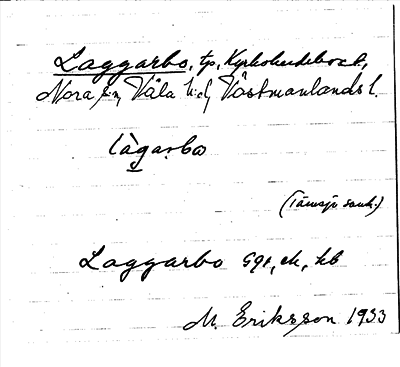 Laggarbo, tp, Kyrkobidebock,
Nora sn, Våla hd, Västmanlands l.
làgarbo
(Tämsjö sank.)
Laggarbo Ggl, ek, kb
M. Eriksson 1933